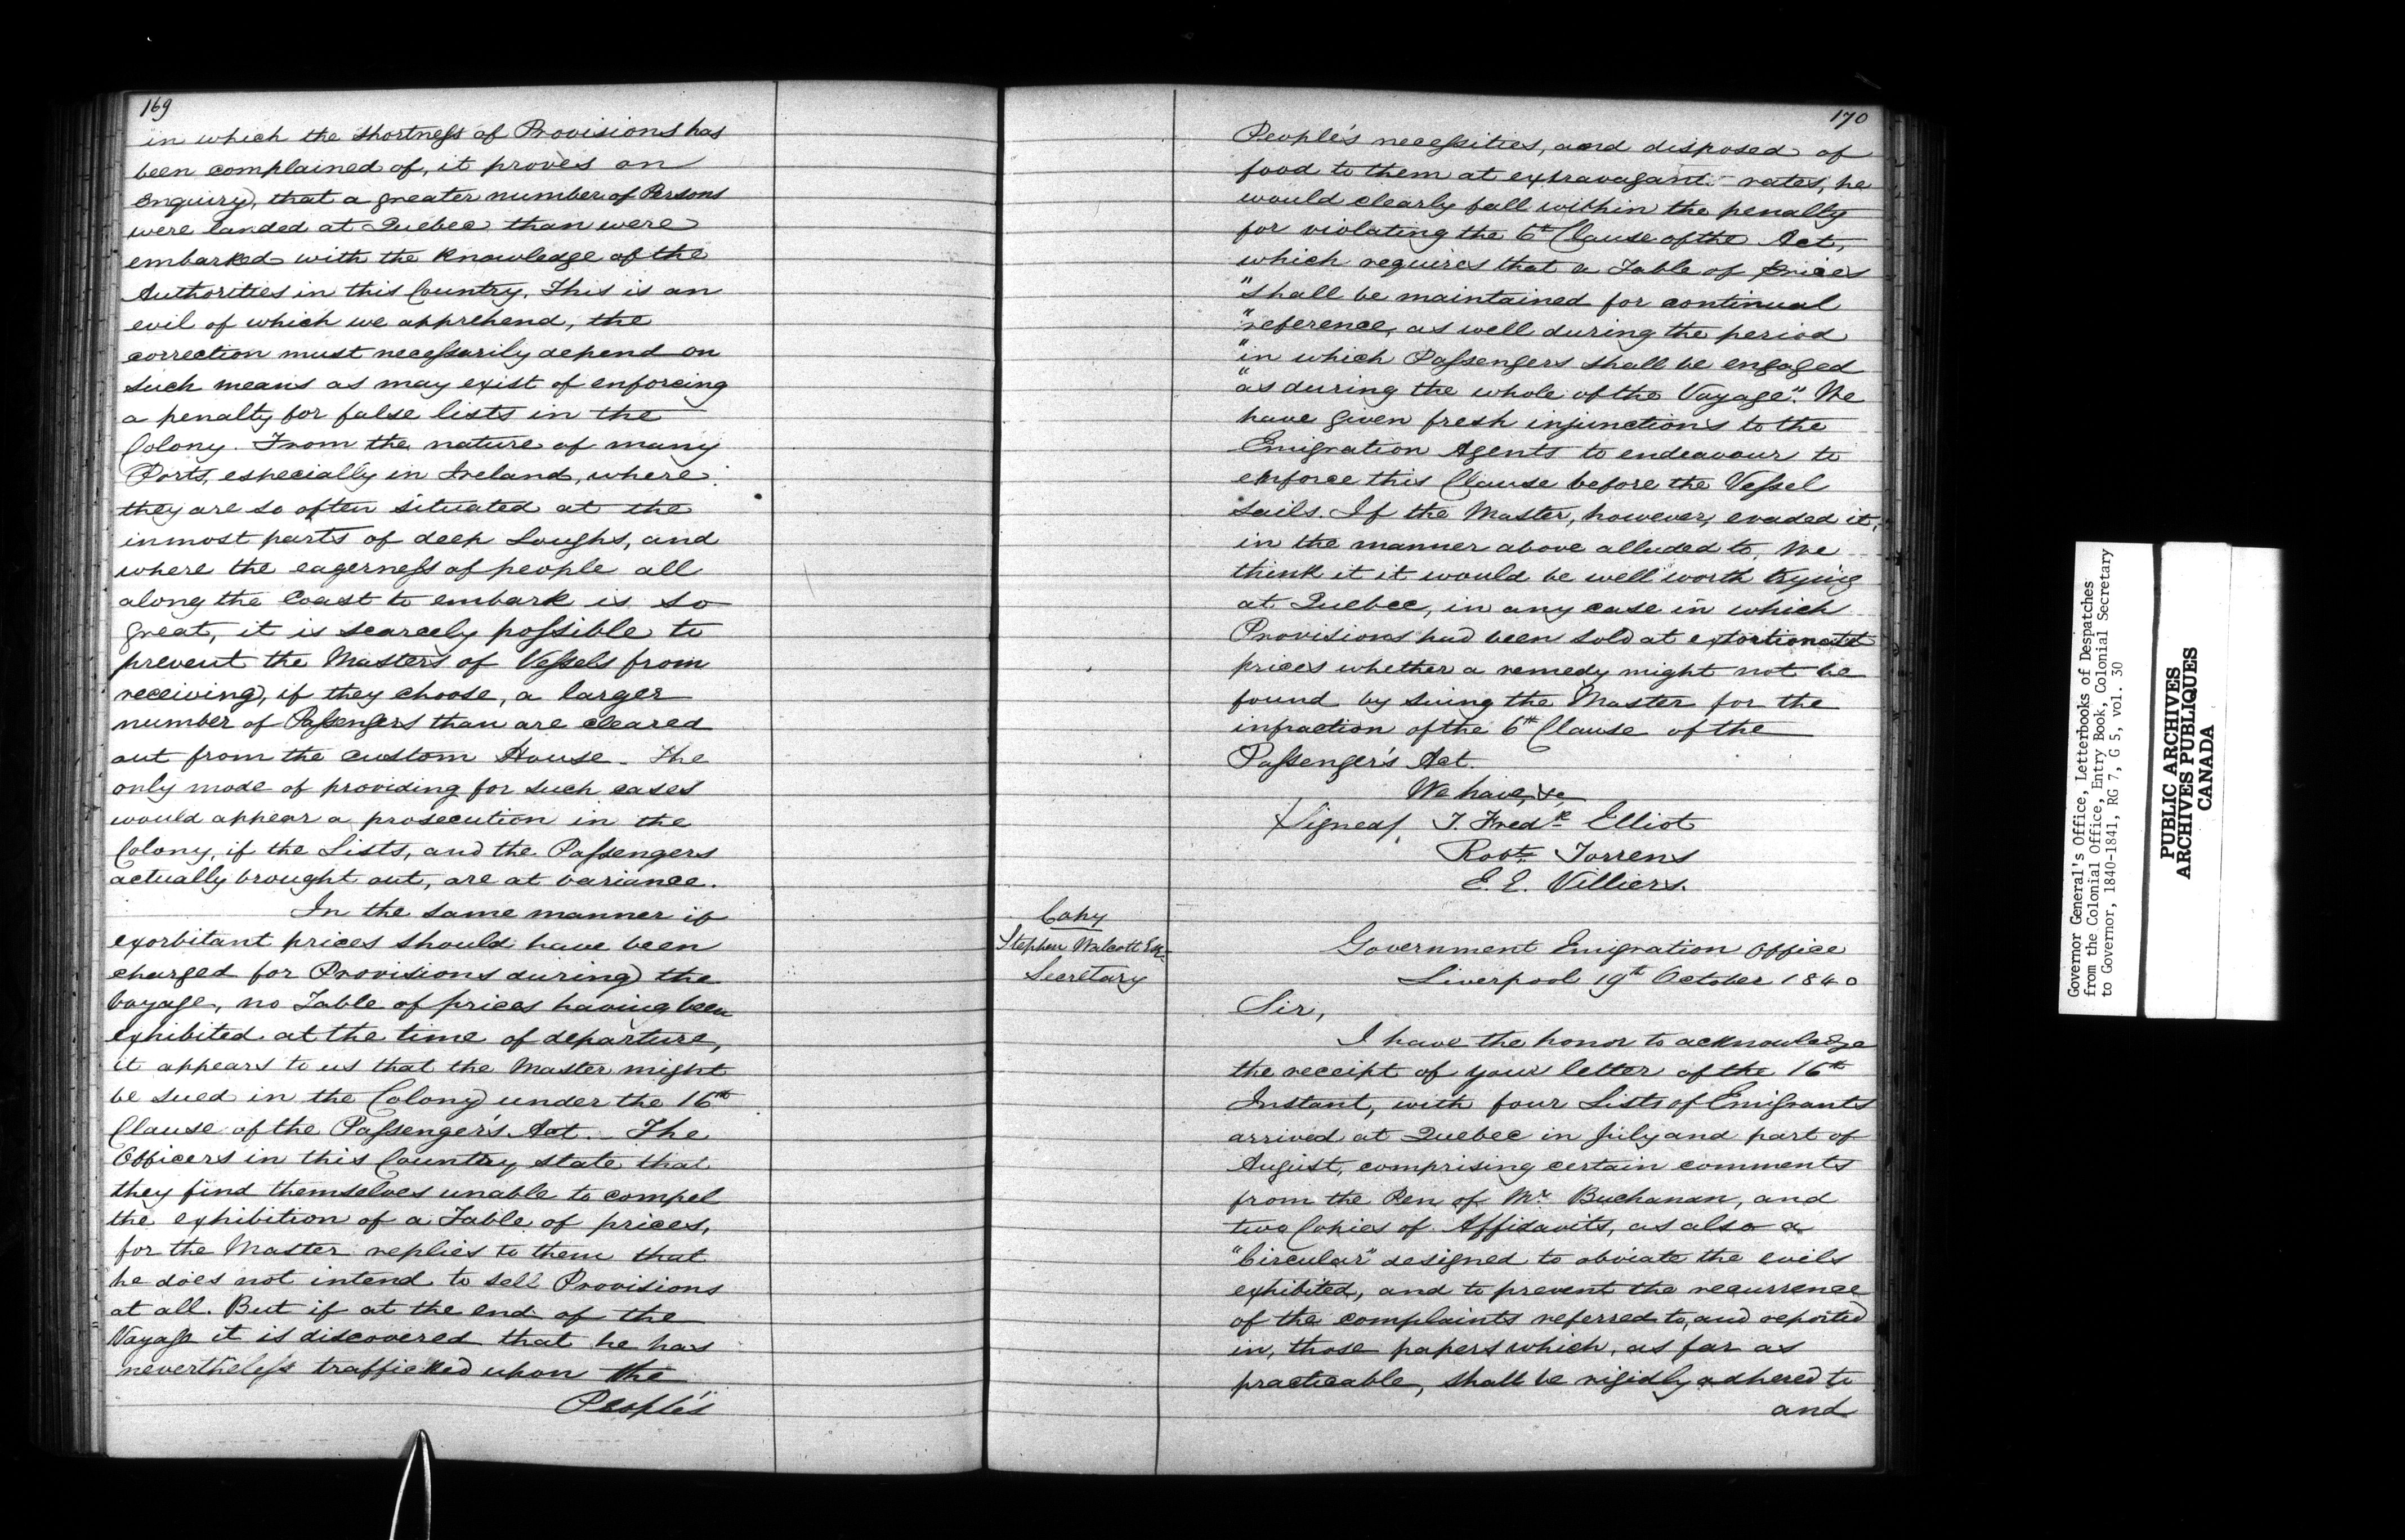 169
in which the shortness of Provisions has
been complained of, it proves on
enquiry, that a greater number of Persons
were landed at Quebec than were
embarked with the knowledge of the
Authorities in this Country. This is an
evil of which we apprehend, the
correction must necessarily depend on
such means as may exist of enforcing
a penalty for false lists in the
Colony. From the nature of many
Ports, especially in Ireland, where
they are so often situated at the
inmost parts of deep Loughs, and
where the eagerness of people all
along the Coast to embark is so
great, it is scarcely possible to
prevent the Masters of Vessels from
receiving, if they choose, a larger
number of Passengers than are cleared
out from the Custom House - The
only mode of providing for such cases
would appear a prosecution in the
Colony, if the Lists, and the Passengers
actually brought out, are at variance.
In the same manner if
exorbitant prices should have been
charged for Provisions during the
Voyage, no Table of prices having been
exhibited at the time of departure,
it appears to us that the Master might
be sued in the Colony under the 16th
Clause of the Passenger's Act. - The
Officers in this Country state that
they find themselves unable to compel
the exhibition of a Table of prices,
for the Master replies to them that
he does not intend to sell Provisions
at all. But if at the end of the
Voyage it is discovered that he has
nevertheless trafficked upon the
People's
170
People's necessities, and disposed of
food to them at extravagant rates, he
would clearly fall within the penalty
for violating the 6th Clause of the Act,
which requires that a Table of prices
"shall be maintained for continual
"reference, as well during the period
"in which Passengers shall be engaged
"as during the whole of the Voyage". We
have given fresh injunctions to the
Emigration Agents to endeavour to
enforce this Clause before the Vessel
sails. If the Master, however, evaded it,
in the manner above alluded to, we
think it it would be well worth trying
at Quebec, in any case in which
Provisions had been sold at extortionate
prices whether a remedy might not be
found by suing the Master for the
infraction of the 6th Clause of the
Passenger's Act.
We have, &c
(Signed) T. Fredk Elliot
Robt Torrens
E. E. Villiers.
Copy
Stephen Walcott Esqr
Secretary
Government Emigration Office
Liverpool 19th October 1840
Sir,
I have the honor to acknowledge
the receipt of your letter of the 16th
Instant, with four Lists of Emigrants
arrived at Quebec in July and part of
August, comprising certain comments
from the Pen of Mr Buchanan, and
two Copies of Affidavits, as also a
"Circular" designed to obviate the evils
exhibited, and to prevent the recurrence
of the complaints referred to, and reported
in, those papers which, as far as
practicable, shall be rigidly adhered to
and
Governor General's Office, Letterbooks of Despatches
from the Colonial Office, Entry Book, Colonial Secretary
to Governor, 1840-1841, RG 7, G 5, vol. 30
PUBLIC ARCHIVES
ARCHIVES PUBLIQUES
CANADA